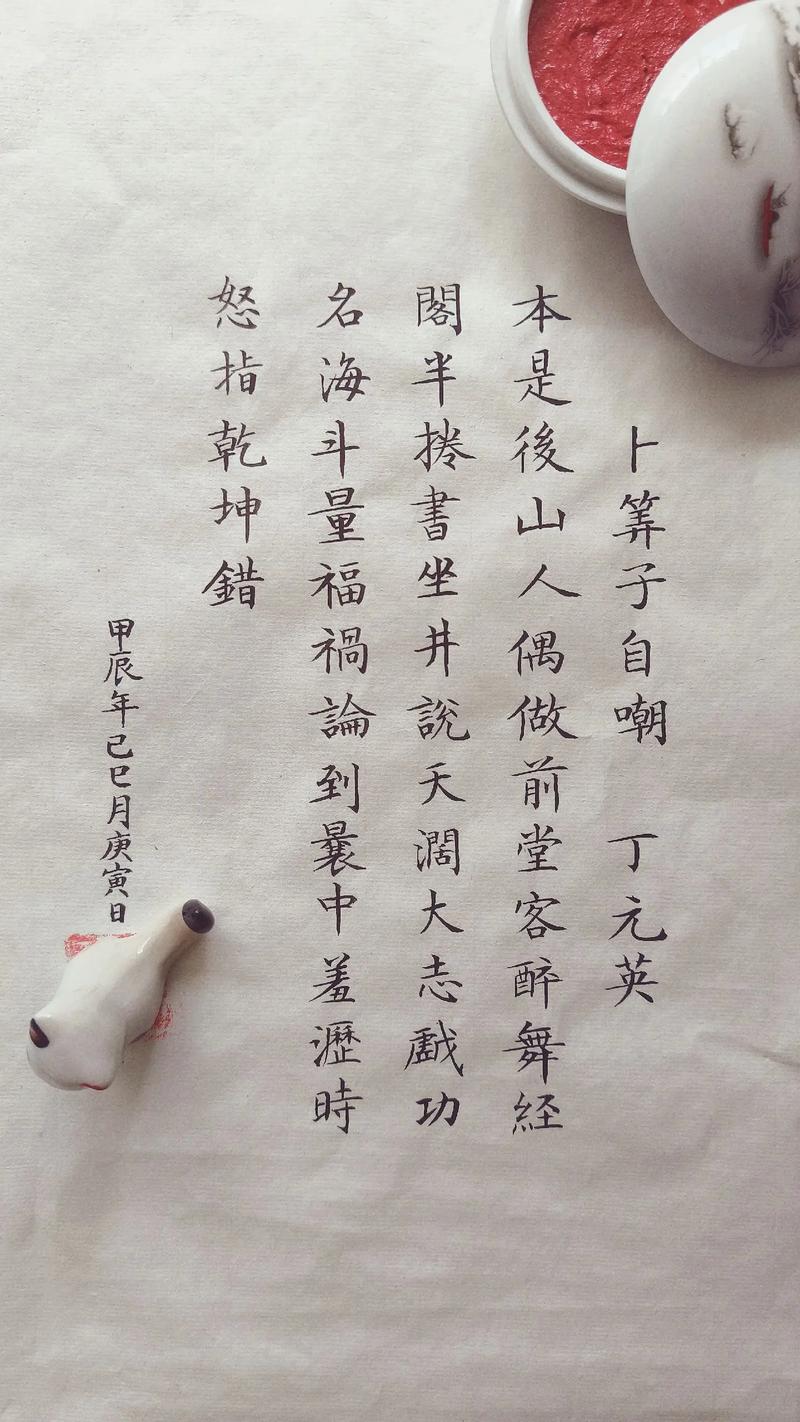 卜筭子自嘲 丁元英
本是後山人偶做前堂客醉舞経
閣半捲書坐井説天濶大志戲功
名海斗量福禍論到囊中羞瀝時
怒指乾坤錯
甲辰年己巳月庚寅日